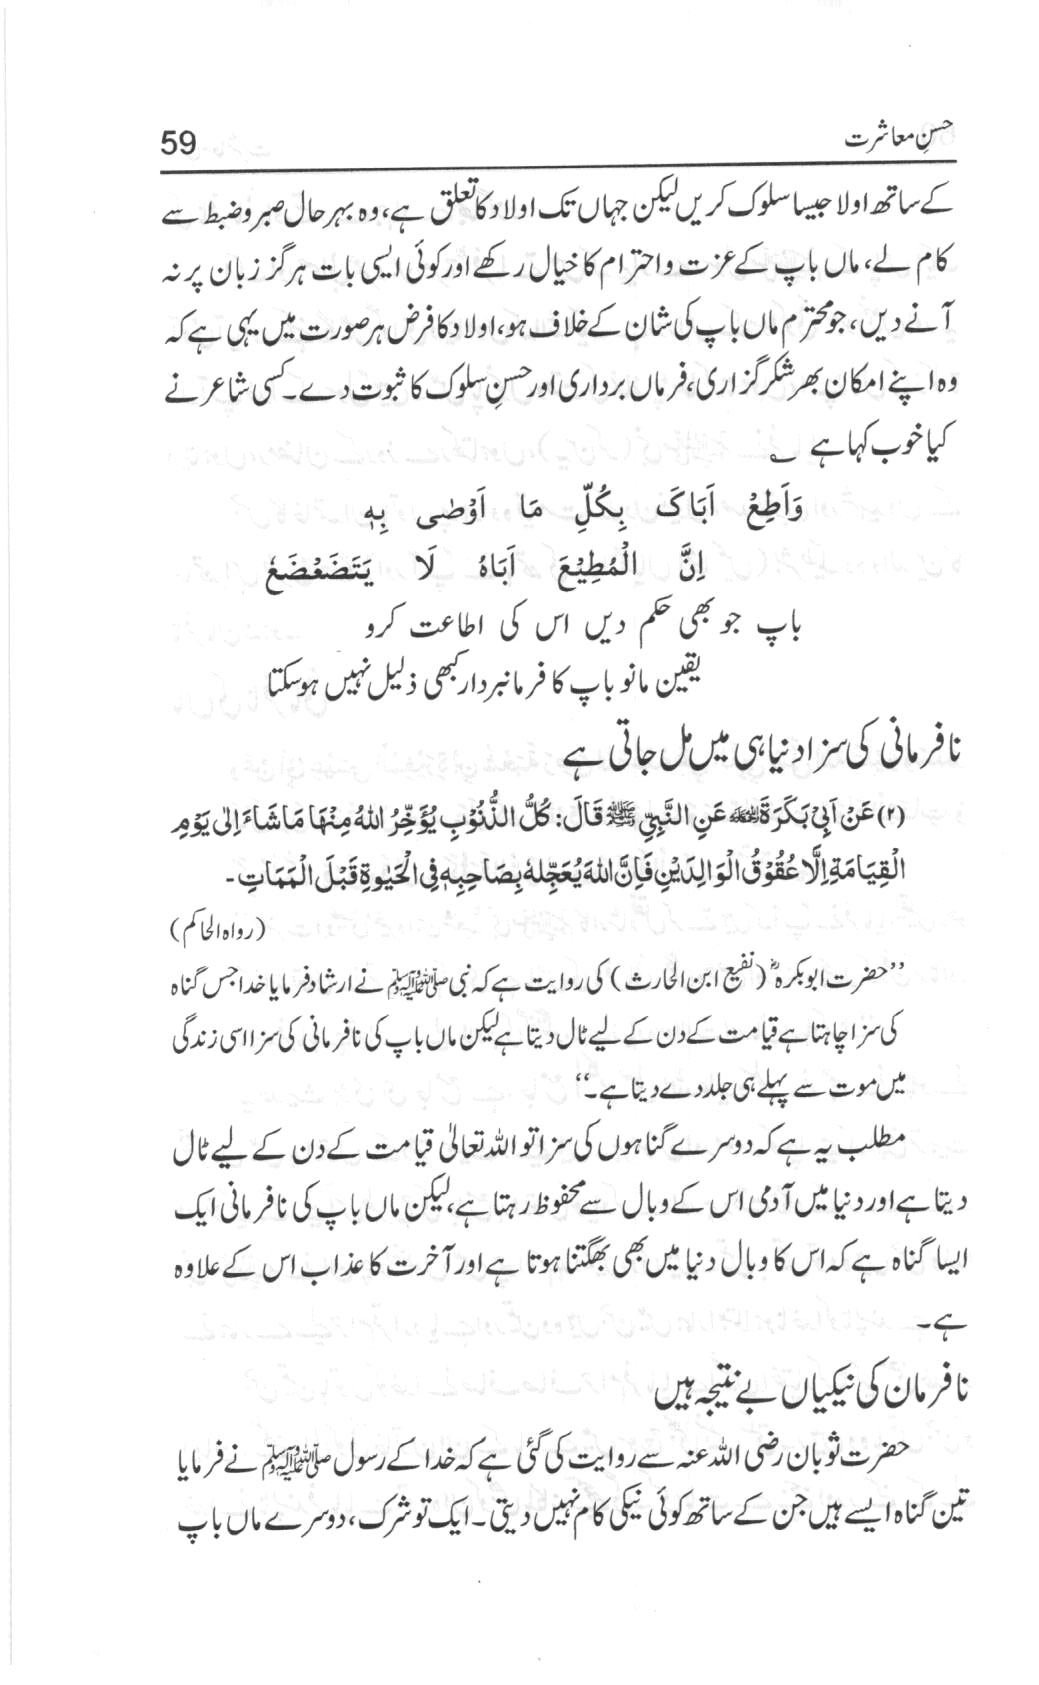 حسنِ معاشرت 59
کے ساتھ اولا جیسا سلوک کریں لیکن جہاں تک اولاد کا تعلق ہے، وہ بہرحال صبر و ضبط سے
کام لے، ماں باپ کے عزت و احترام کا خیال رکھے اور کوئی ایسی بات ہرگز زبان پر نہ
آنے دیں، جو محترم ماں باپ کی شان کے خلاف ہو، اولاد کا فرض ہر صورت میں یہی ہے کہ
وہ اپنے امکان بھر شکر گزاری، فرماں برداری اور حسنِ سلوک کا ثبوت دے۔ کسی شاعر نے
کیا خوب کہا ہے ؎
وَاَطِعْ اَبَاکَ بِکُلِّ مَا اَوْصٰی بِہٖ
اِنَّ الْمُطِیْعَ اَبَاہُ لَا یَتَضَعْضَعٗ
باپ جو بھی حکم دیں اس کی اطاعت کرو
یقین مانو باپ کا فرمانبردار کبھی ذلیل نہیں ہو سکتا
نافرمانی کی سزا دنیا ہی میں مل جاتی ہے
(۲) عَنْ اَبِیْ بَکَرَۃَ رضی اللہ عنہ عَنِ النَّبِیِّ ﷺ قَالَ: کُلُّ الذُّنُوْبِ یُؤَخِّرُ اللہُ مِنْھَا مَا شَاءَ اِلٰی یَوْمِ
الْقِیَامَۃِ اِلَّا عُقُوْقُ الْوَالِدَیْنِ فَاِنَّ اللہَ یُعَجِّلہٗ بِصَاحِبِہٖ فِی الْحَیٰوۃِ قَبْلَ الْمَمَاتِ۔
(رواہ الحاکم)
”حضرت ابوبکرہؓ (نفیع ابن الحارث) کی روایت ہے کہ نبی ﷺ نے ارشاد فرمایا خدا جس گناہ
کی سزا چاہتا ہے قیامت کے دن کے لیے ٹال دیتا ہے لیکن ماں باپ کی نافرمانی کی سزا اسی زندگی
میں موت سے پہلے ہی جلد دے دیتا ہے۔“
مطلب یہ ہے کہ دوسرے گناہوں کی سزا تو اللہ تعالیٰ قیامت کے دن کے لیے ٹال
دیتا ہے اور دنیا میں آدمی اس کے وبال سے محفوظ رہتا ہے، لیکن ماں باپ کی نافرمانی ایک
ایسا گناہ ہے کہ اس کا وبال دنیا میں بھی بھگتنا ہوتا ہے اور آخرت کا عذاب اس کے علاوہ
ہے۔
نافرمان کی نیکیاں بے نتیجہ ہیں
حضرت ثوبان رضی اللہ عنہ سے روایت کی گئی ہے کہ خدا کے رسول ﷺ نے فرمایا
تین گناہ ایسے ہیں جن کے ساتھ کوئی نیکی کام نہیں دیتی۔ ایک تو شرک، دوسرے ماں باپ